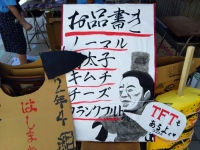 お品書き
ノーマル
太子
キムチ
チーズ
フランクフルト
TFTも
あるよ♡
2年4
はしま